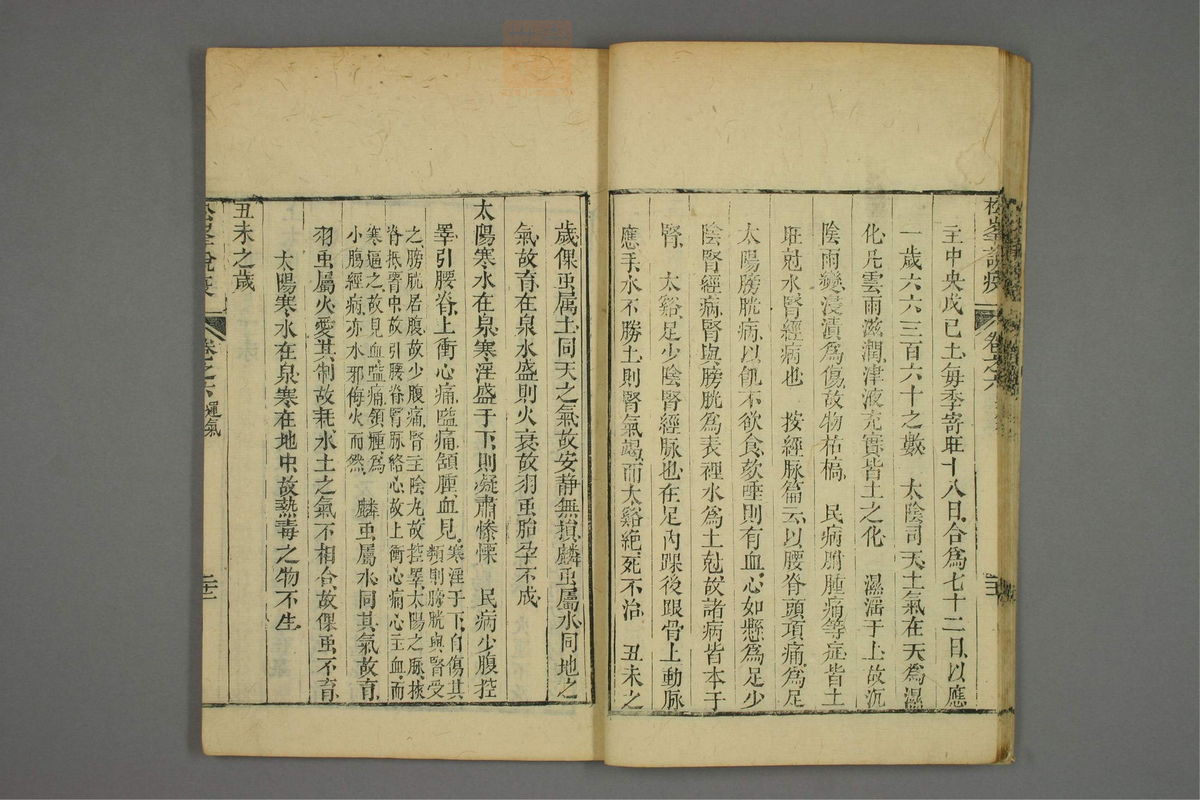 松峯說疫 卷之六
主中央戊己土每季寄旺十八日合爲七十二日以應
一歲六六三百六十之數 太陰司天土氣在天爲濕
化凡雲雨滋潤津液充實皆土之化 濕淫于上故沉
陰雨變浸漬爲傷故物枯槁 民病胕腫痛等症皆土
旺尅水腎經病也 按經脉篇云以腰脊頭項痛爲足
太陽膀胱病以飢不欲食欬唾則有血心如懸爲足少
陰腎經病腎與膀胱爲表裡水爲土尅故諸病皆本于
腎 太谿足少陰腎經脉也在足內踝後跟骨上動脉
應手水不勝土則腎氣竭而太谿絶死不治 丑未之
歲倮虫属土同天之氣故安静無損鱗虫屬水同地之
氣故育在泉水盛則火衰故羽虫胎孕不成
太陽寒水在泉寒淫盛于下則凝肅慘慄 民病少腹控
睪引腰脊上衝心痛嗌痛頷腫血見
寒淫于下自傷其
類則膀胱與腎受
之膀胱居腹故少腹痛腎主陰丸故控睪太陽之脉挾
脊抵腎中故引腰脊腎脉絡心故上衝心痛心主血而
寒逼之故見血嗌痛頷腫爲
小腸經病亦水邪侮火而然 鱗虫屬水同其氣故育
羽虫屬火愛其制故耗水土之氣不相合故倮虫不育
太陽寒水在泉寒在地中故熱毒之物不生
丑未之歲
松峯說疫 卷之六 運氣